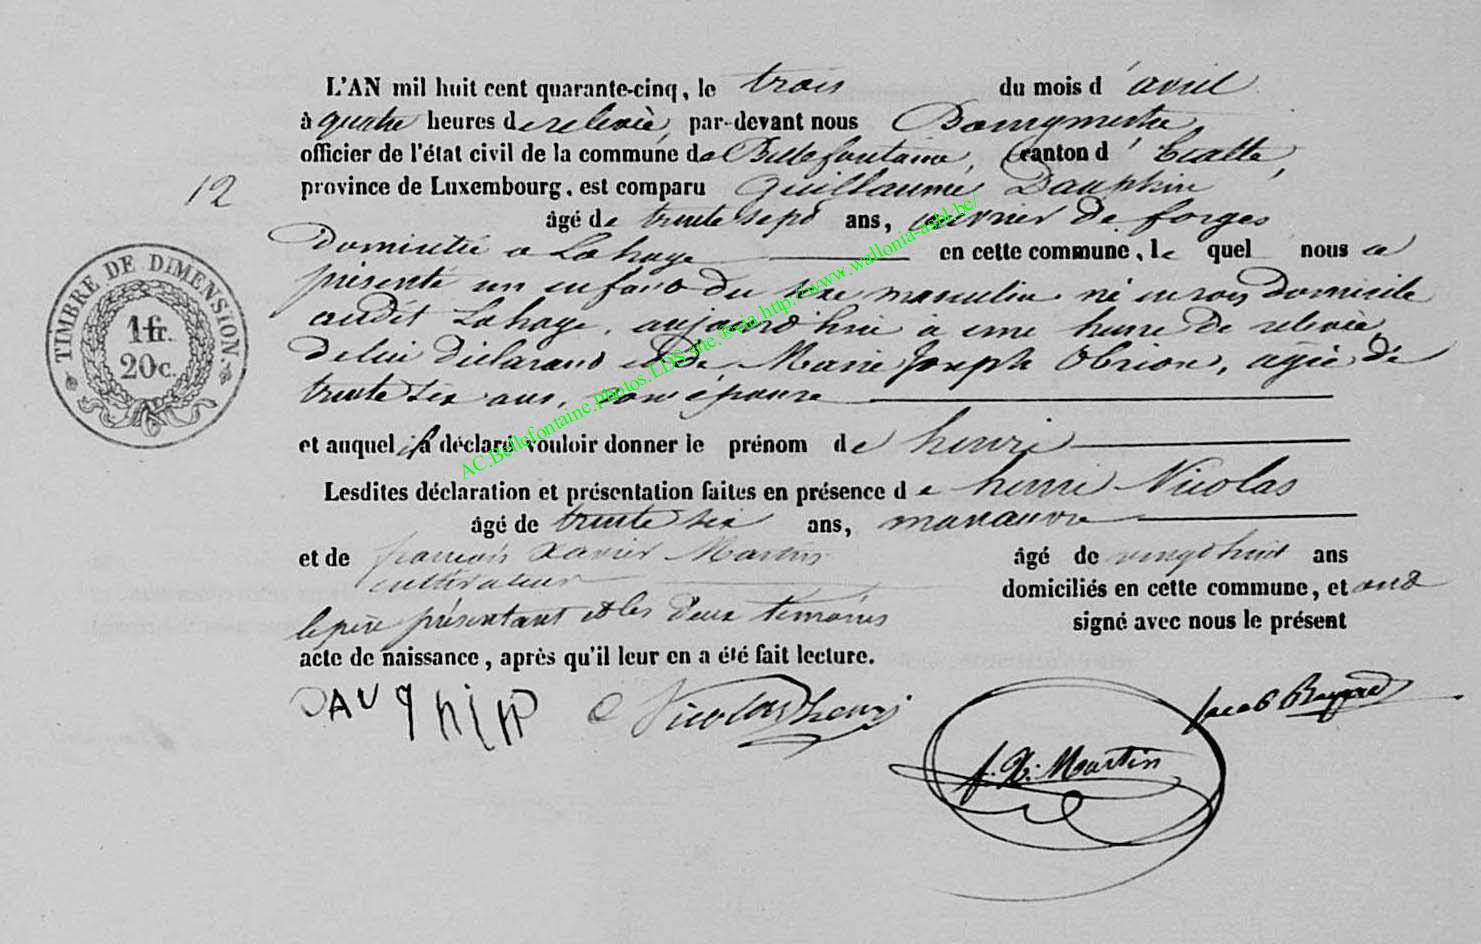 L'AN mil huit cent quarante-cinq, le trois du mois d'avril
à quatre heures de relevée, par-devant nous Bourgmestre
officier de l'état civil de la commune de Bellefontaine, canton d'Etalle,
12 province de Luxembourg, est comparu Guillaume Dauphin
âgé de trente sept ans, ouvrier de forges
Domicilié à Lahage en cette commune, le quel nous a
présenté un enfant du sexe masculin né en son domicile
audit Lahage, aujourd'hui à une heure de relevée
de lui déclarant et de Marie Joseph Obrion, agée de
trente six ans, son épouse
et auquel il a déclaré vouloir donner le prénom de henri
Lesdites déclaration et présentation faites en présence de henri Nicolas
âgé de trente six ans, manœuvre
et de françois Xavier Martin âgé de vingt huit ans
cultivateur domiciliés en cette commune, et ont
le père présentant et les deux témoins signé avec nous le présent
acte de naissance, après qu'il leur en a été fait lecture.
TIMBRE DE DIMENSION.
1 fr.
20c.
DAUPHIN Nicolas henri f. X. Martin Jacob
AC.Bellefontaine.Photos.LDS.site.®via.http://www.wallonia-asbl.be/